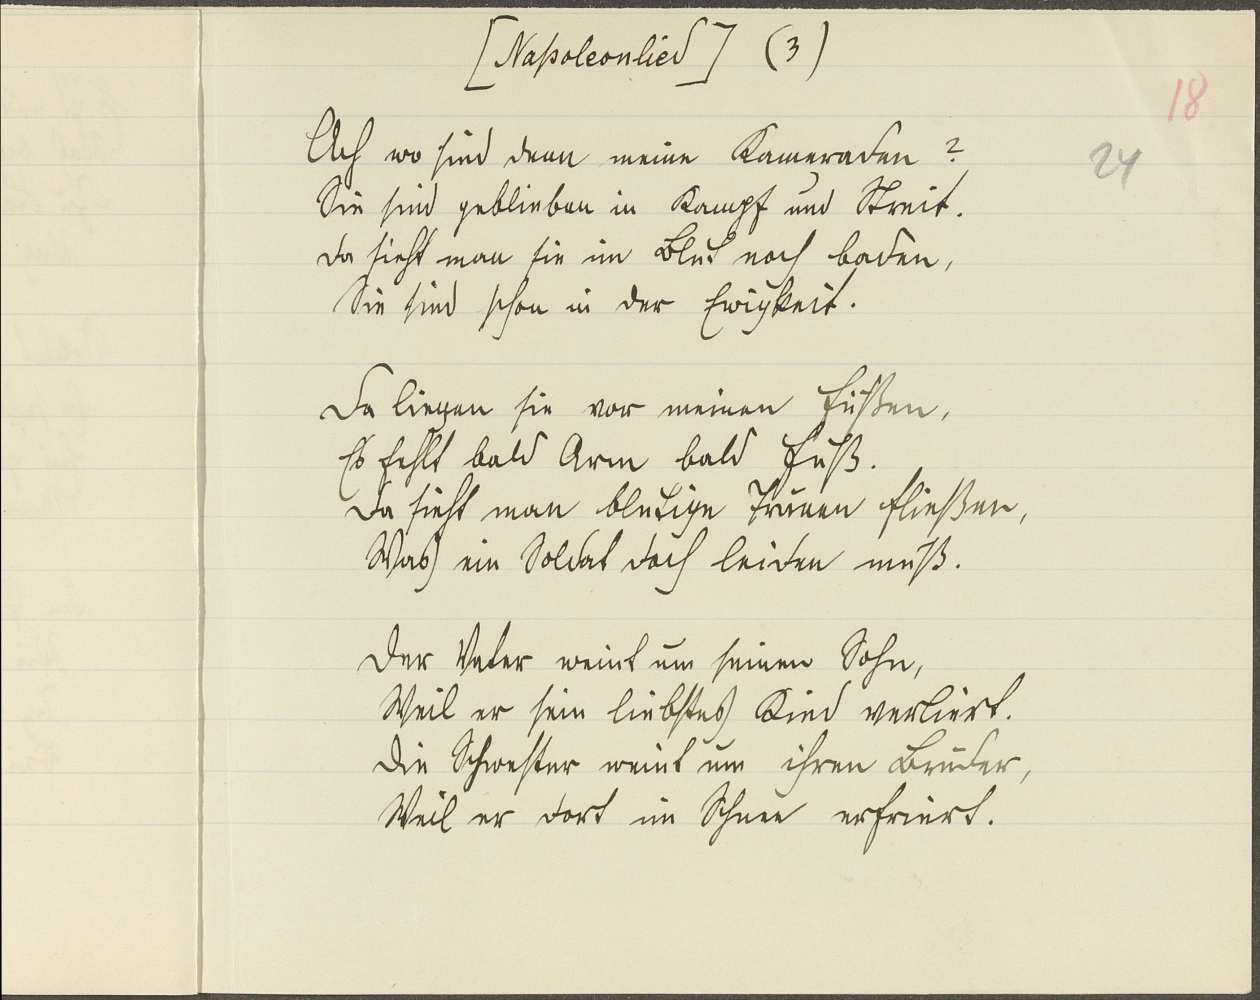 [Napoleonlied] (3)
18
24
Ach wo sind denn meine Kameraden?
Sie sind geblieben in Kampf und Streit.
Da sieht man sie im Blut noch baden,
Sie sind schon in der Ewigkeit.
Da liegen sie vor meinen Füßen,
Es fehlt bald Arm bald Fuß.
Da sieht man blutige Tränen fließen,
Was ein Soldat doch leiden muß.
Der Vater weint um seinen Sohn,
Weil er sein liebstes Kind verliert.
Die Schwester weint um ihren Bruder,
Weil er dort im Schnee erfriert.